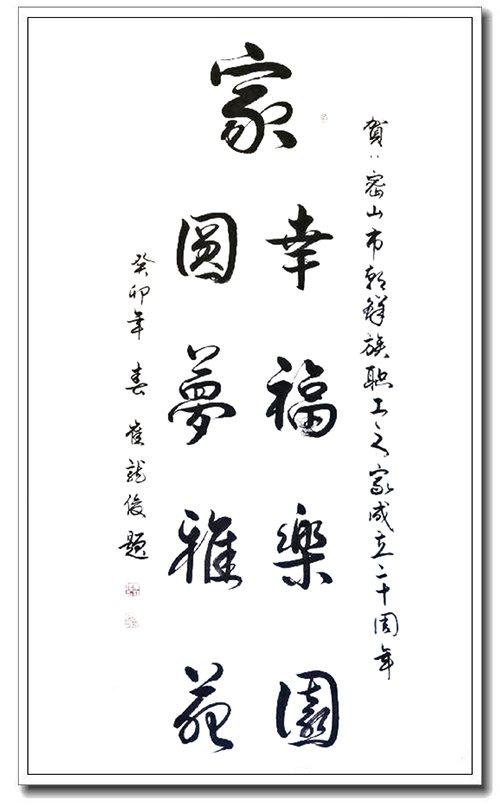 賀：密山市朝鲜族职工之家成立二十周年
家
幸福樂園
圓夢雅苑
癸卯年 春 崔龍俊題